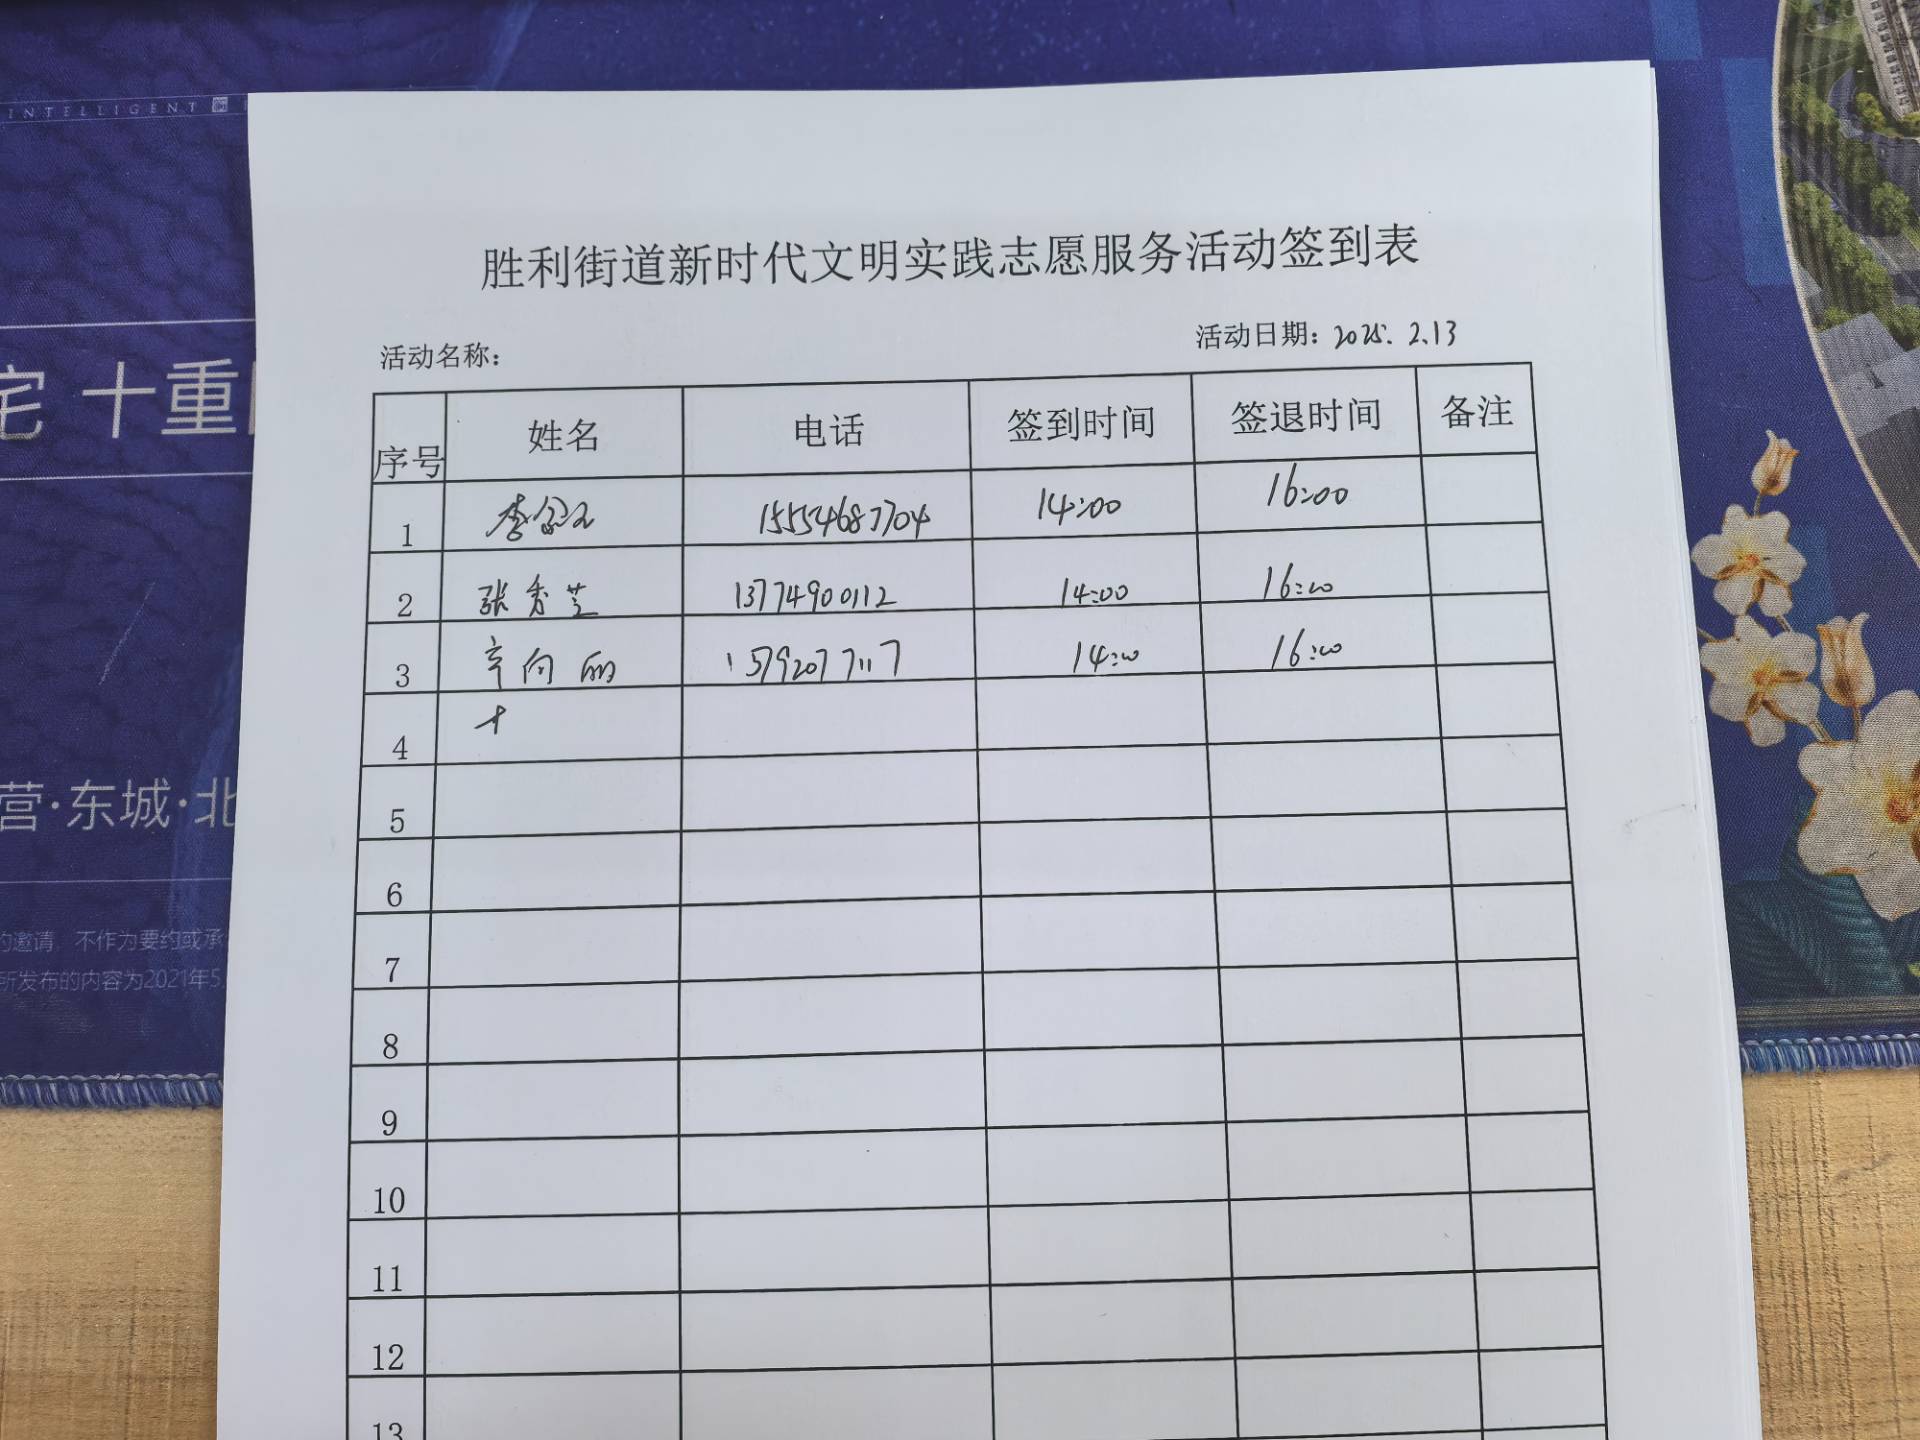 INTELLIGENT
宅 十重
营·东城·北
的邀请,不作为要约或承
所发布的内容为2021年5.
胜利街道新时代文明实践志愿服务活动签到表
活动名称: 活动日期: 2025. 2.13
序号 姓名 电话 签到时间 签退时间 备注
1 李 15554687704 14:00 16:00
2 张秀芝 13774900112 14:00 16:00
3 辛向丽 15792077117 14:00 16:00
4
5
6
7
8
9
10
11
12
13